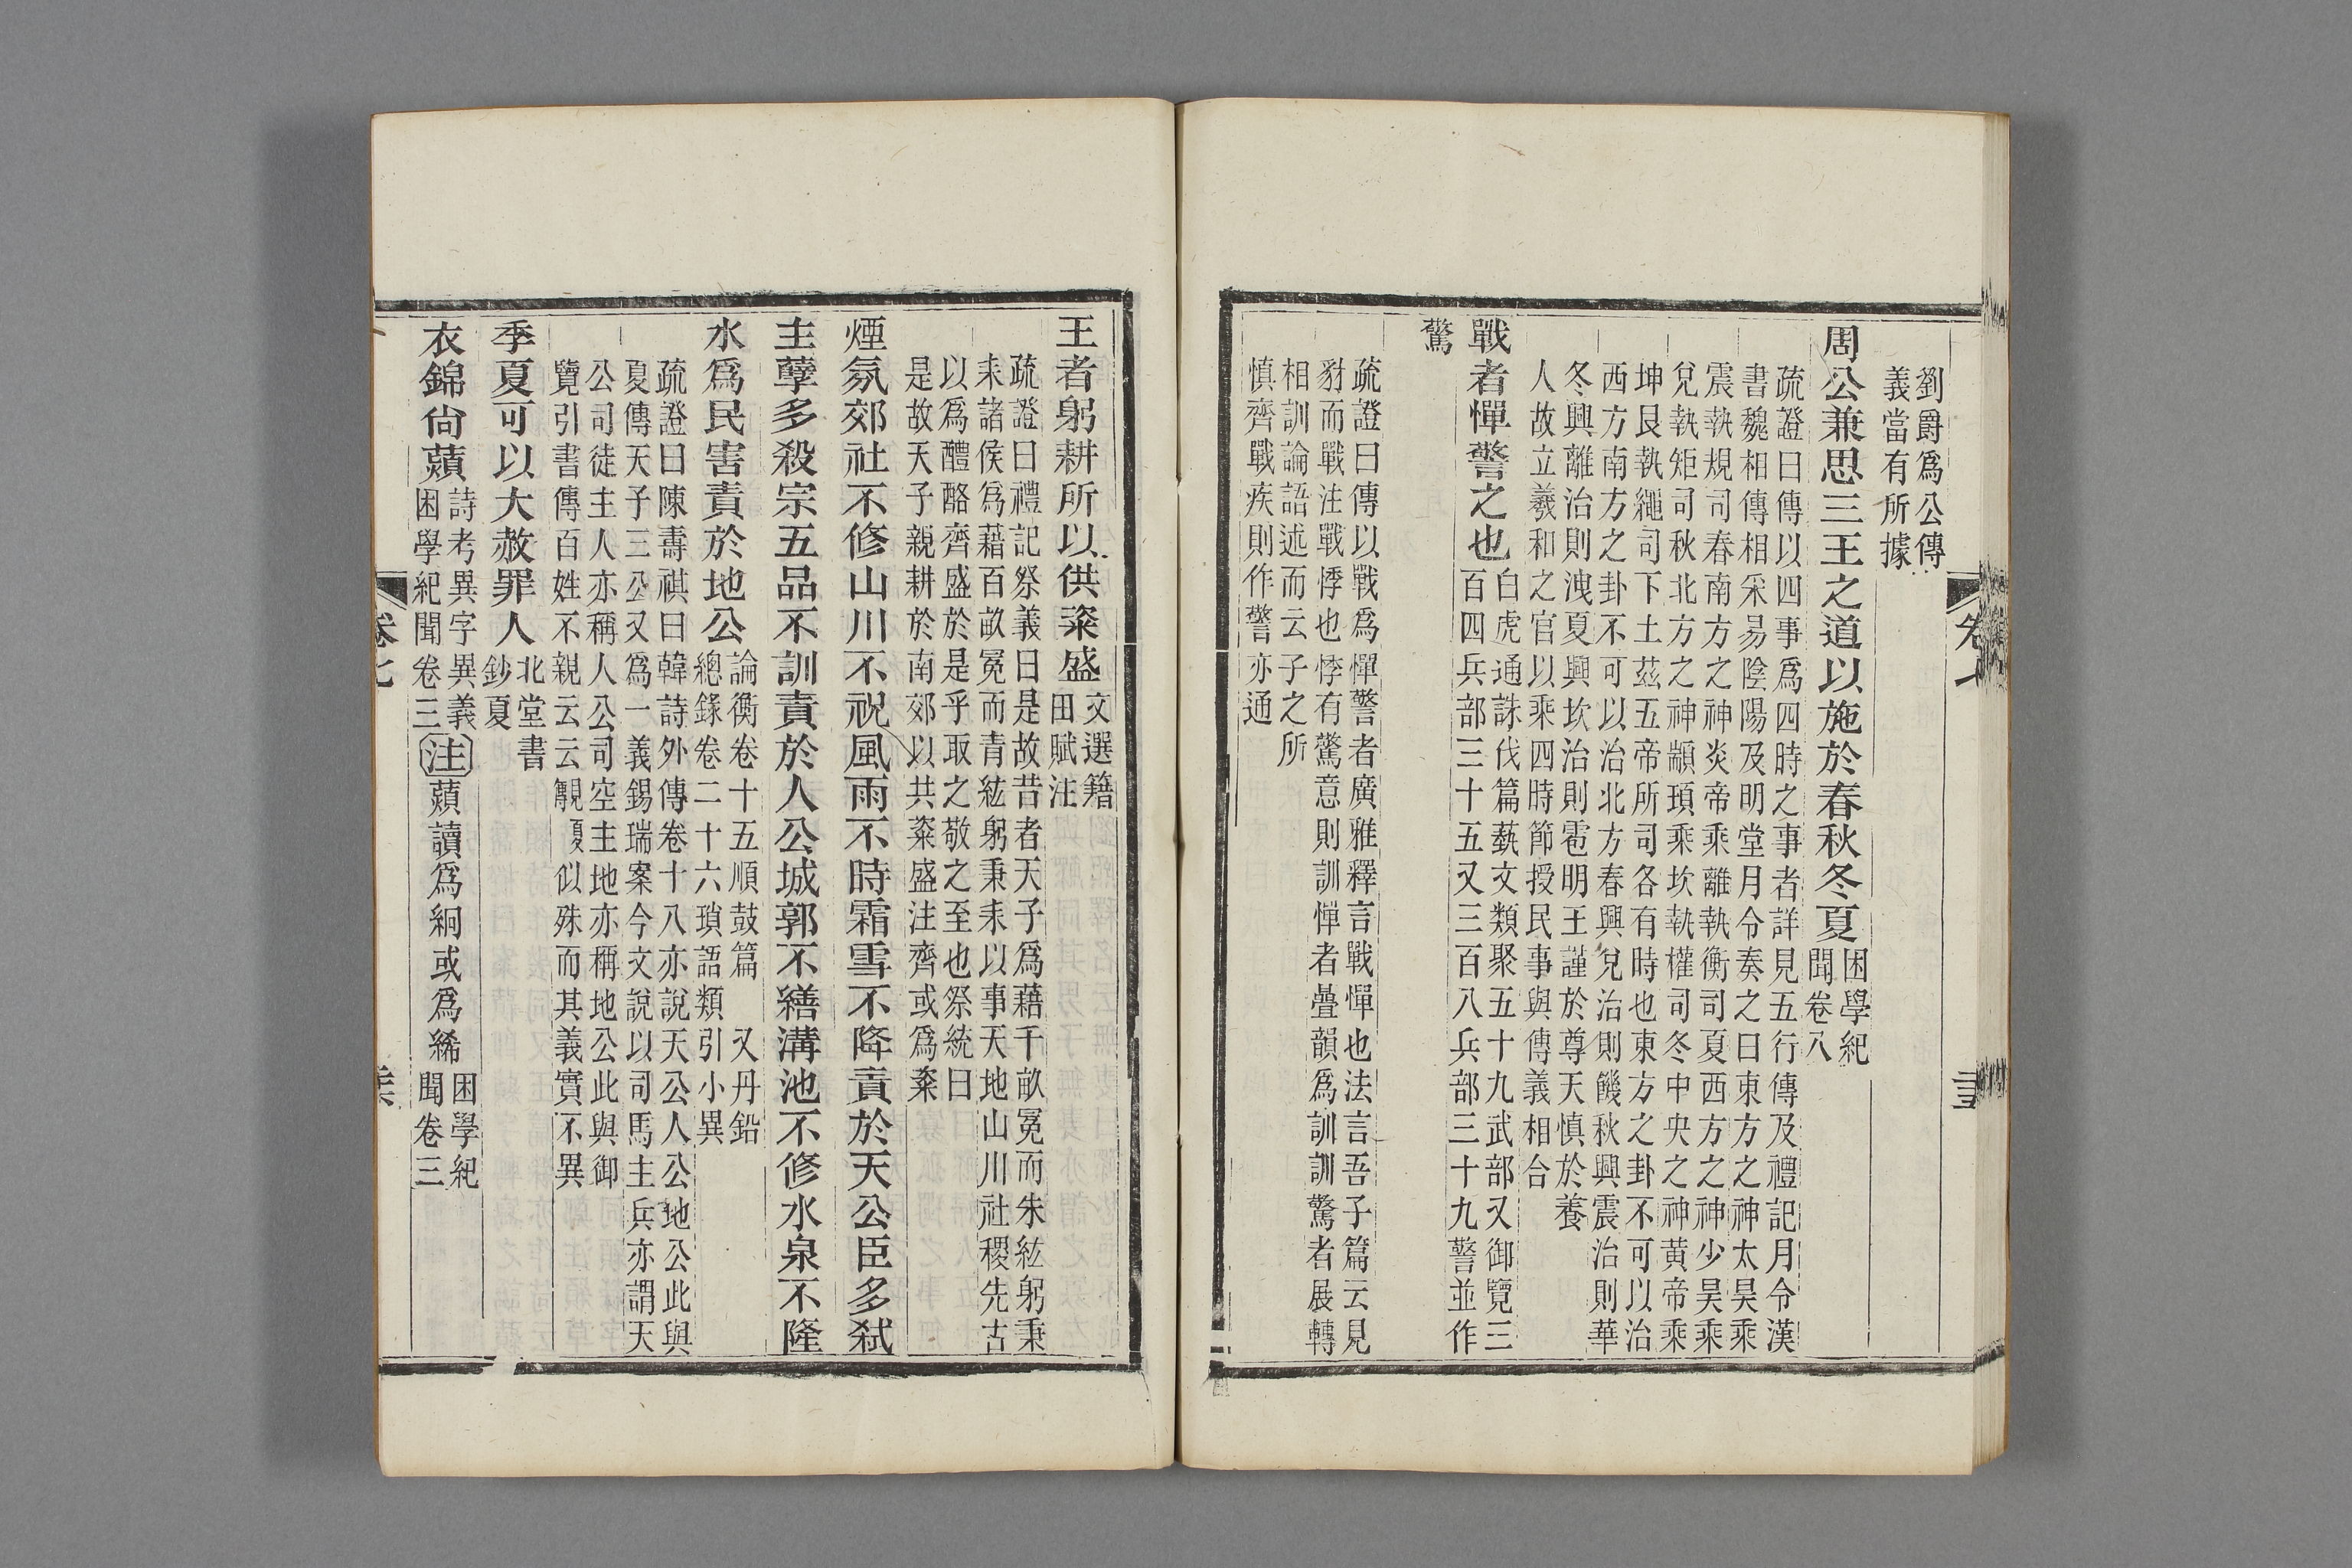 劉爵爲公傳
義當有所據
周公兼思三王之道以施於春秋冬夏
困學紀
聞卷八
疏證曰傳以四事爲四時之事者詳見五行傳及禮記月令漢
書魏相傳相采易陰陽及明堂月令奏之曰東方之神太昊乘
震執規司春南方之神炎帝乘離執衡司夏西方之神少昊乘
兌執矩司秋北方之神顓頊乘坎執權司冬中央之神黃帝乘
坤艮執繩司下土茲五帝所司各有時也東方之卦不可以治
西方南方之卦不可以治北方春興兌治則饑秋興震治則華
冬興離治則洩夏興坎治則雹明王謹於尊天慎於養
人故立羲和之官以乘四時節授民事與傳義相合
戰者憚警之也
白虎通誅伐篇藝文類聚五十九武部又御覽三
百四兵部三十五又三百八兵部三十九警並作
驚
疏證曰傳以戰爲憚警者廣雅釋言戰憚也法言吾子篇云見
豺而戰注戰悸也悸有驚意則訓憚者疊韻爲訓訓驚者展轉
相訓論語述而云子之所
慎齊戰疾則作警亦通
卷七
王者躬耕所以供粢盛
文選籍
田賦注
疏證曰禮記祭義曰是故昔者天子爲藉千畝冕而朱紘躬秉
耒諸侯爲藉百畝冕而青紘躬秉耒以事天地山川社稷先古
以爲醴酪齊盛於是乎取之敬之至也祭統曰
是故天子親耕於南郊以共粢盛注齊或爲粢
煙氛郊社不修山川不祝風雨不時霜雪不降責於天公臣多弒
主孽多殺宗五品不訓責於人公城郭不繕溝池不修水泉不隆
水爲民害責於地公
論衡卷十五順鼓篇 又丹鉛
總錄卷二十六瑣語類引小異
疏證曰陳壽祺曰韓詩外傳卷十八亦說天公人公地公此與
夏傳天子三公又爲一義錫瑞案今文說以司馬主兵亦謂天
公司徒主人亦稱人公司空主地亦稱地公此與御
覽引書傳百姓不親云云觀 夏似殊而其義實不異
季夏可以大赦罪人
北堂書
鈔夏
衣錦尙蘋
詩考異字異義
困學紀聞卷三
注
蘋讀爲絅或爲絺
困學紀
聞卷三
卷七